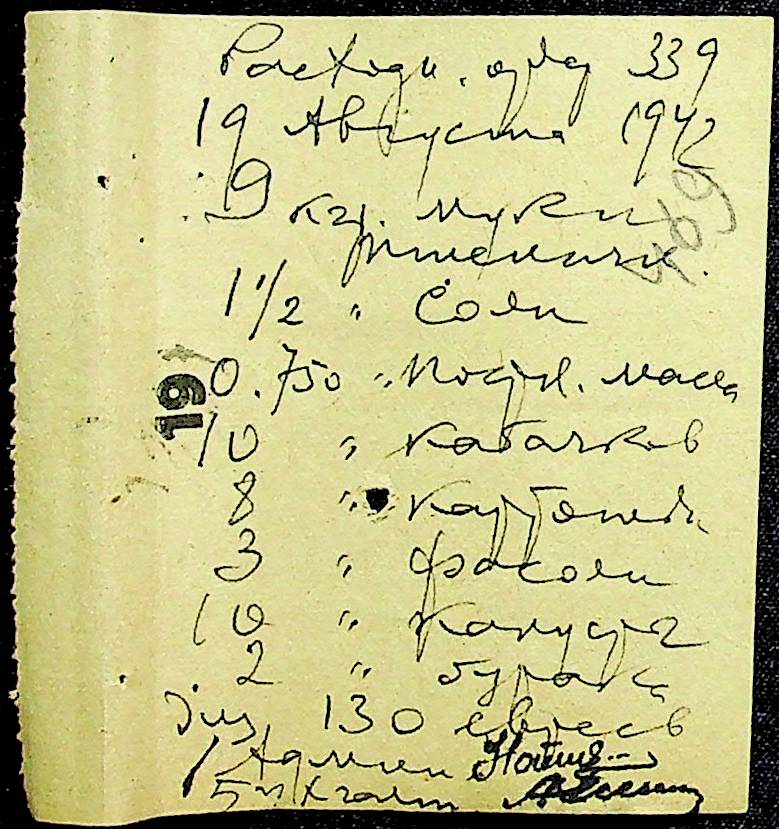 Расходн. орд 339
19 Августа 1942
9 кгр. муки
пшеничн.
1 1/2 " Соли
0.750 " Подсл. масла
10 " Кабачков
8 " Картошки
3 " Фасоли
10 " Капуста
2 " бурака
для 130 евреев
19
569